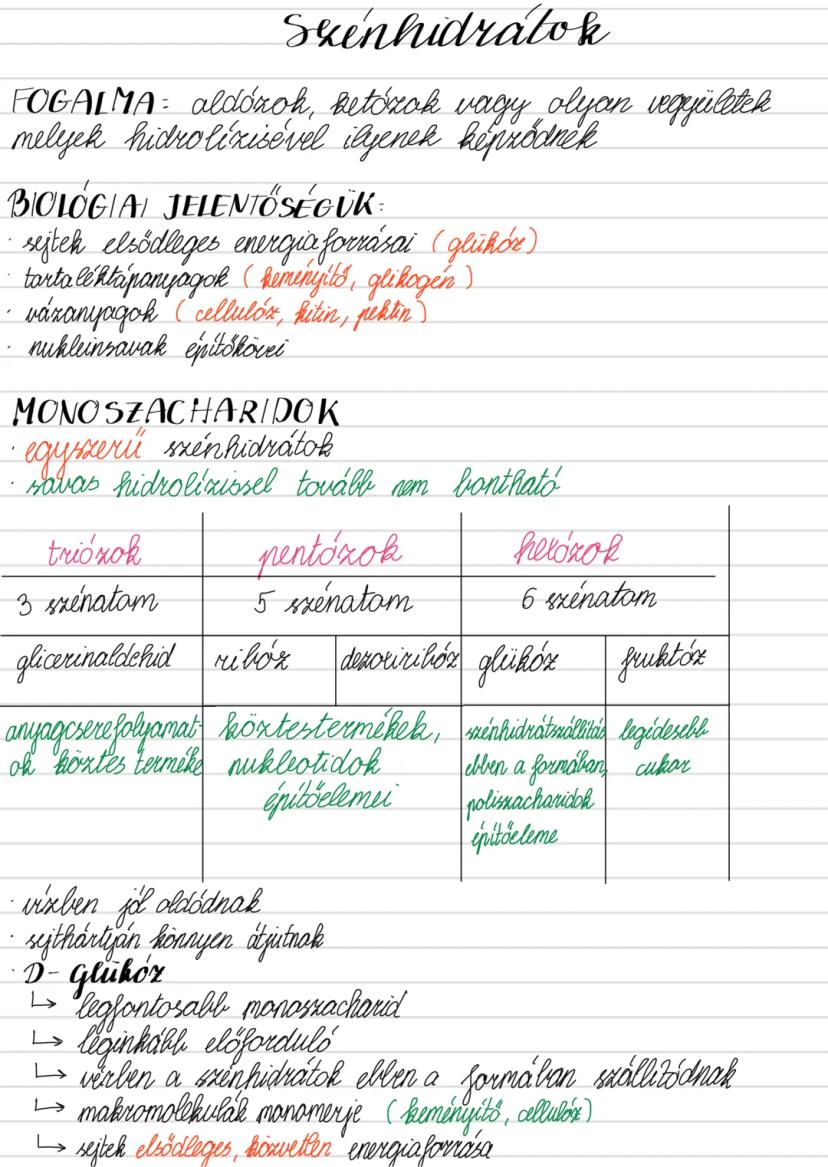 Szénhidrátok
FOGALMA: aldózok, ketózok vagy olyan vegyületek
melyek hidrolízisével ilyenek képződnek
BIOLÓGIAI JELENTŐSÉGÜK:
· sejtek elsődleges energiaforrásai (glükóz)
· tartaléktápanyagok (keményítő, glikogén)
· vázanyagok (cellulóz, kitin, pektin)
· nukleinsavak építőkövei
MONOSZACHARIDOK
· egyszerű szénhidrátok
· savas hidrolízissel tovább nem bontható
triózok pentózok hexózok
3 szénatom 5 szénatom 6 szénatom
glicerinaldehid ribóz dezoxiribóz glükóz fruktóz
anyagcserefolyamat-
ok köztes terméke
köztestermékek,
nukleotidok
építőelemei
szénhidrátszállítás
ebben a formában,
poliszacharidok
építőeleme
legédesebb
cukor
· vízben jól oldódnak
· sejthártyán könnyen átjutnak
· D- glükóz
↳ legfontosabb monoszacharid
↳ leginkább előforduló
↳ vérben a szénhidrátok ebben a formában szállítódnak
↳ makromolekulák monomerje (keményítő, cellulóz)
↳ sejtek elsődleges, közvetlen energiaforrása